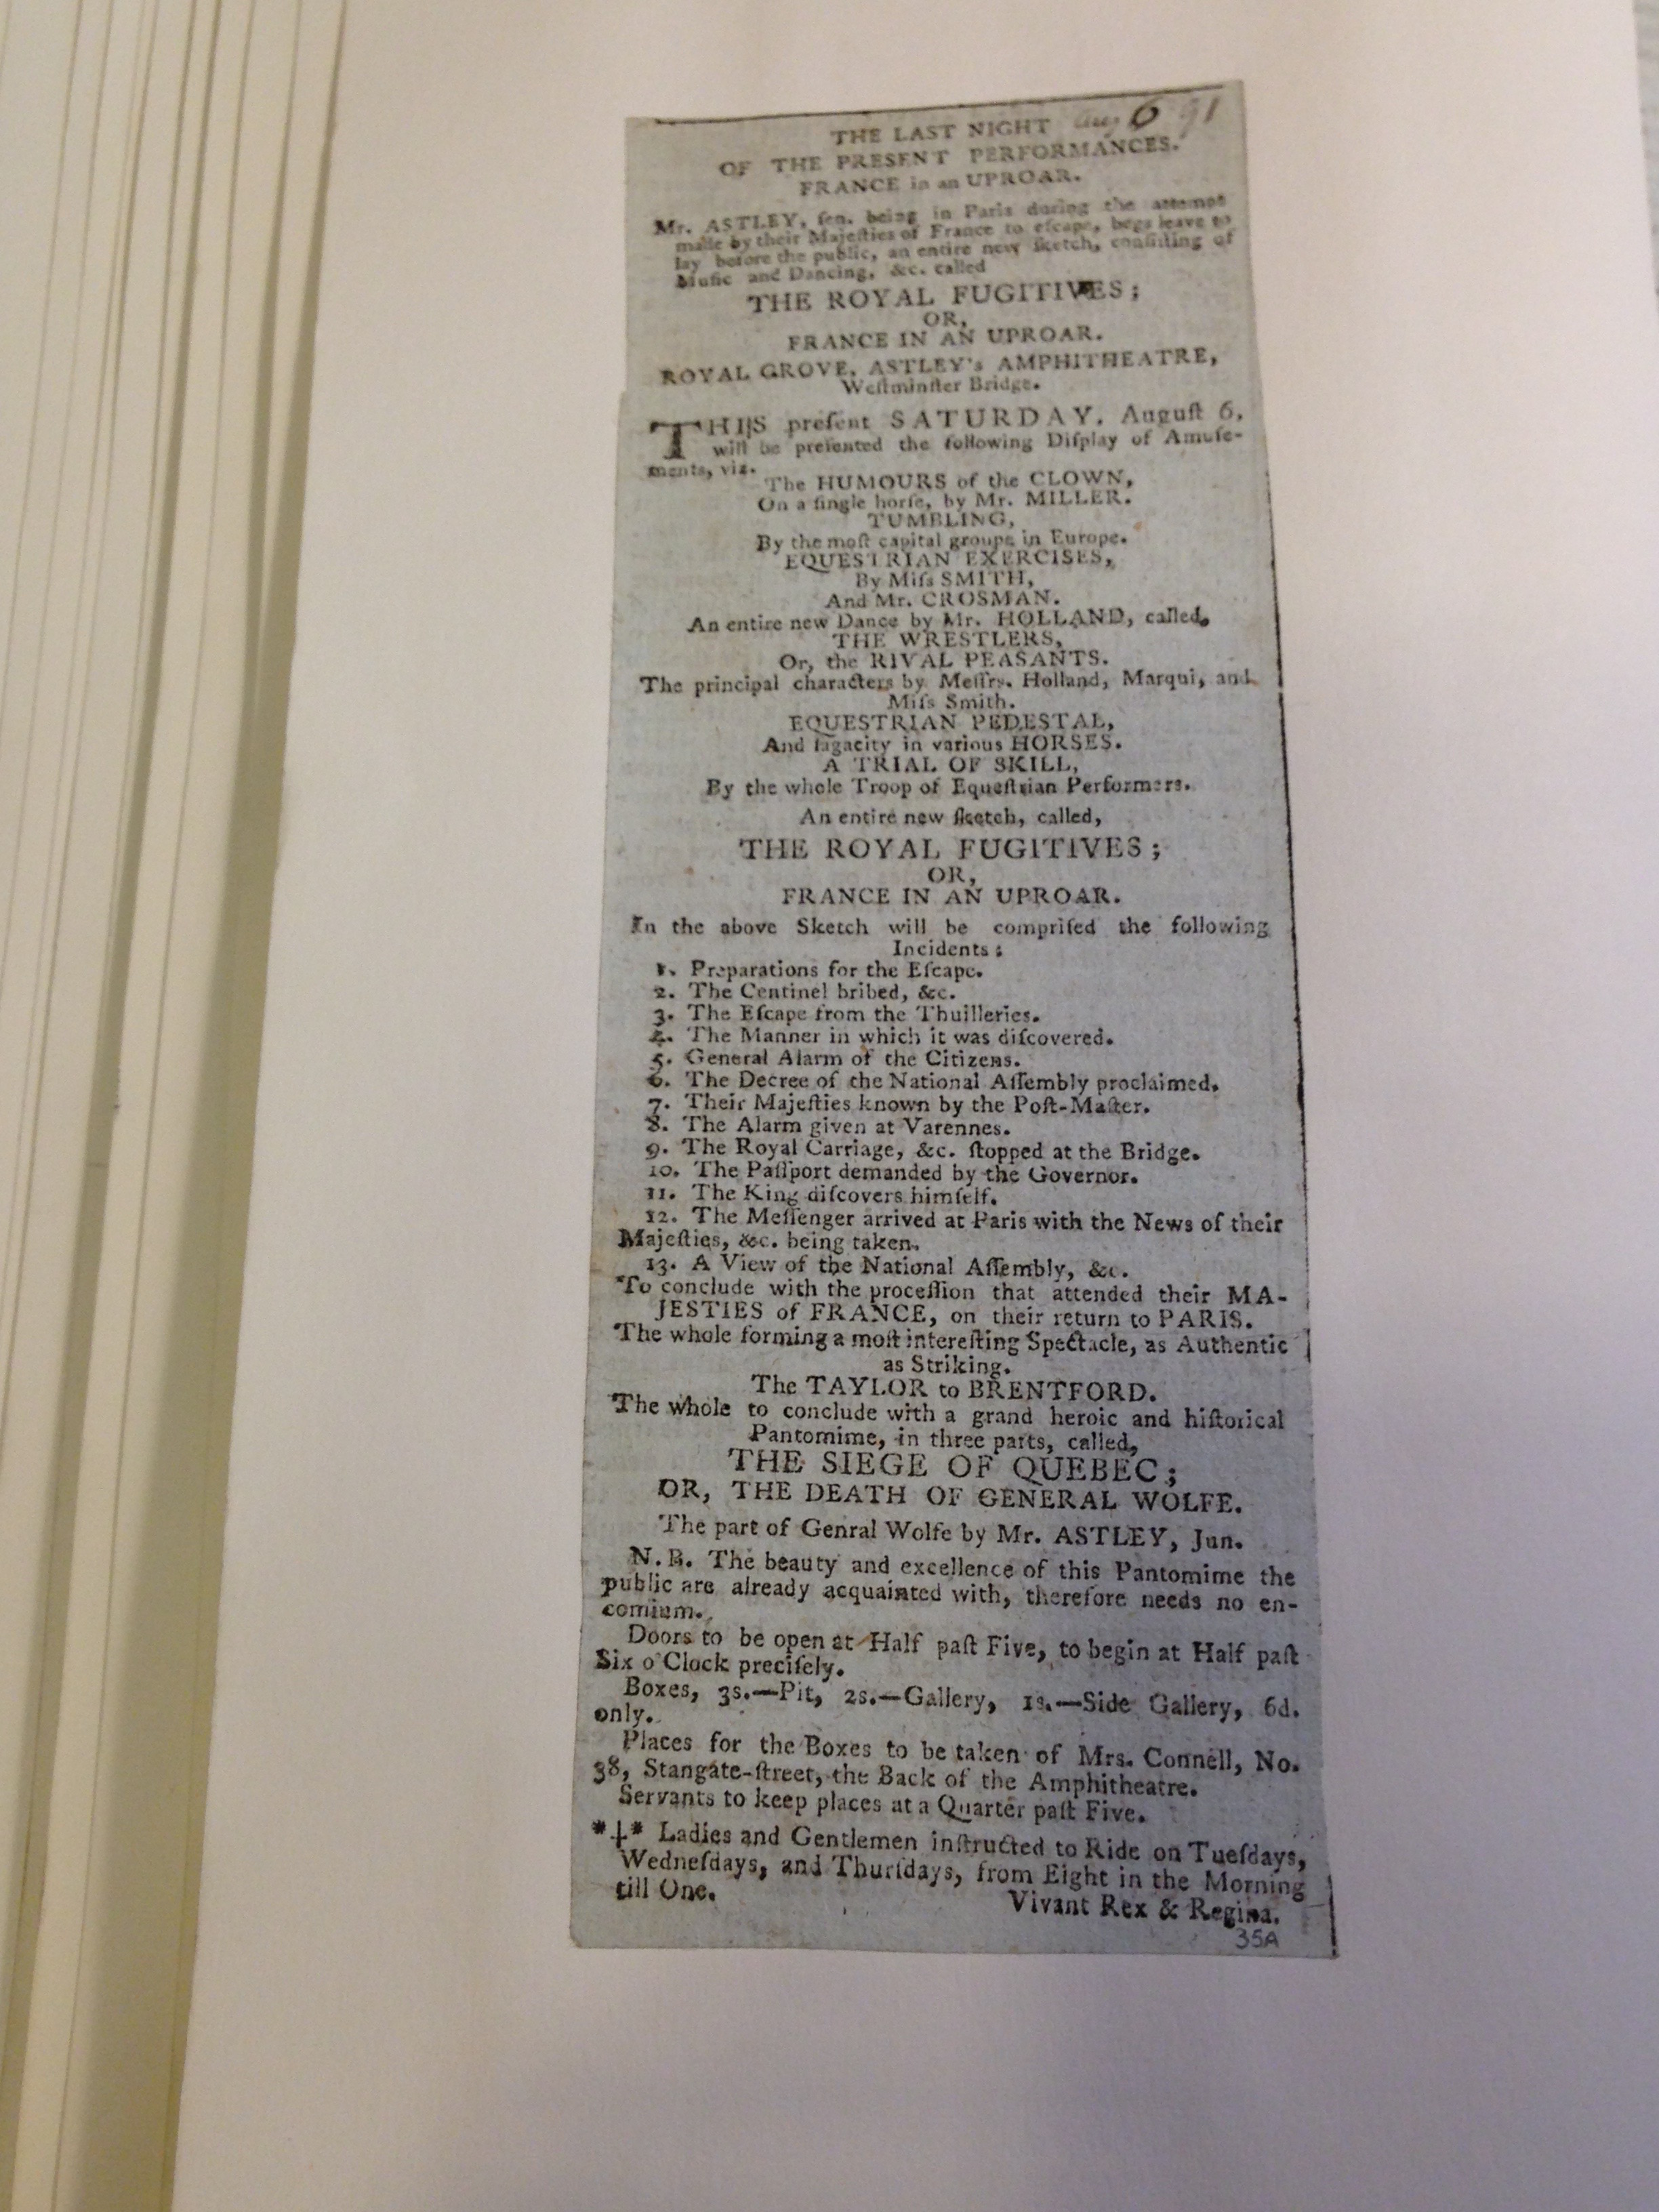 Aug 6 91
THE LAST NIGHT
OF THE PRESENT PERFORMANCES.
FRANCE in an UPROAR.
Mr. ASTLEY, ſen. being in Paris during the attempt
made by their Majeſties of France to eſcape, begs leave to
lay before the public, an entire new ſketch, conſiſting of
Muſic and Dancing, &c. called
THE ROYAL FUGITIVES;
OR,
FRANCE IN AN UPROAR.
ROYAL GROVE, ASTLEY's AMPHITHEATRE,
Weſtminſter Bridge.
THIS preſent SATURDAY, Auguſt 6,
will be preſented the following Diſplay of Amuſe-
ments, viz.
The HUMOURS of the CLOWN,
On a ſingle horſe, by Mr. MILLER.
TUMBLING,
By the moſt capital groups in Europe.
EQUESTRIAN EXERCISES,
By Miſs SMITH,
And Mr. CROSMAN.
An entire new Dance by Mr. HOLLAND, called,
THE WRESTLERS,
Or, the RIVAL PEASANTS.
The principal characters by Meſſrs. Holland, Marqui, and
Miſs Smith.
EQUESTRIAN PEDESTAL,
And ſagacity in various HORSES.
A TRIAL OF SKILL,
By the whole Troop of Equeſtrian Performers.
An entire new ſketch, called,
THE ROYAL FUGITIVES;
OR,
FRANCE IN AN UPROAR.
In the above Sketch will be compriſed the following
Incidents:
1. Preparations for the Eſcape.
2. The Centinel bribed, &c.
3. The Eſcape from the Thuilleries.
4. The Manner in which it was diſcovered.
5. General Alarm of the Citizens.
6. The Decree of the National Aſſembly proclaimed.
7. Their Majeſties known by the Poſt-Maſter.
8. The Alarm given at Varennes.
9. The Royal Carriage, &c. ſtopped at the Bridge.
10. The Paſſport demanded by the Governor.
11. The King diſcovers himſelf.
12. The Meſſenger arrived at Paris with the News of their
Majeſties, &c. being taken.
13. A View of the National Aſſembly, &c.
To conclude with the proceſſion that attended their MA-
JESTIES of FRANCE, on their return to PARIS.
The whole forming a moſt intereſting Spectacle, as Authentic
as Striking.
The TAYLOR to BRENTFORD.
The whole to conclude with a grand heroic and hiſtorical
Pantomime, in three parts, called,
THE SIEGE OF QUEBEC;
OR, THE DEATH OF GENERAL WOLFE.
The part of Genral Wolfe by Mr. ASTLEY, Jun.
N.B. The beauty and excellence of this Pantomime the
public are already acquainted with, therefore needs no en-
comium.
Doors to be open at Half paſt Five, to begin at Half paſt
Six o'Clock preciſely.
Boxes, 3s.—Pit, 2s.—Gallery, 1s.—Side Gallery, 6d.
only.
Places for the Boxes to be taken of Mrs. Connell, No.
38, Stangate-ſtreet, the Back of the Amphitheatre.
Servants to keep places at a Quarter paſt Five.
*†* Ladies and Gentlemen inſtructed to Ride on Tueſdays,
Wedneſdays, and Thurſdays, from Eight in the Morning
till One.
Vivant Rex & Regina.
35A